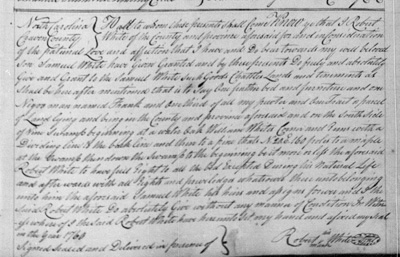 North Carolina To all to whom these presents Shall Come Know ye that I Robert
Craven County White of the County and province aforesaid for and in Consideration
of the paternal Love and affection that I have and Do bear towards my well beloved
Son Samuel White have given Granted and by these presents Do freely and absolutely
Give and Grant to the Samuel White Such Goods Chattels Lands and tenements as
Shall be here after mentioned that is to Say One feather bed and furniture and one
Negro man named Frank and one third of all my and a parcel
of Land Lying and being in the County and province aforesaid and on the South Side
of New Swamp beginning at a white oak William White Corner and runs with a
Dividing line to the back line and then to a pine to a maple
at the Swamp then down the Swamp to the beginning the aforesaid
Robert White to have full right to all the Sd During his Natural Life
and afterwards with all rights and priviledges whatsoever there unto belonging
unto him the aforesaid Samuel White his heirs and assigns forever and I the
Said Robert White Do absolutely Give without any manner of Condition In Witness
whereof I the Said Robert White have hereunto Set my hand and affixed my Seal
in the year 1764
Signed Sealed and Delivered in presence of Robert his White
mark